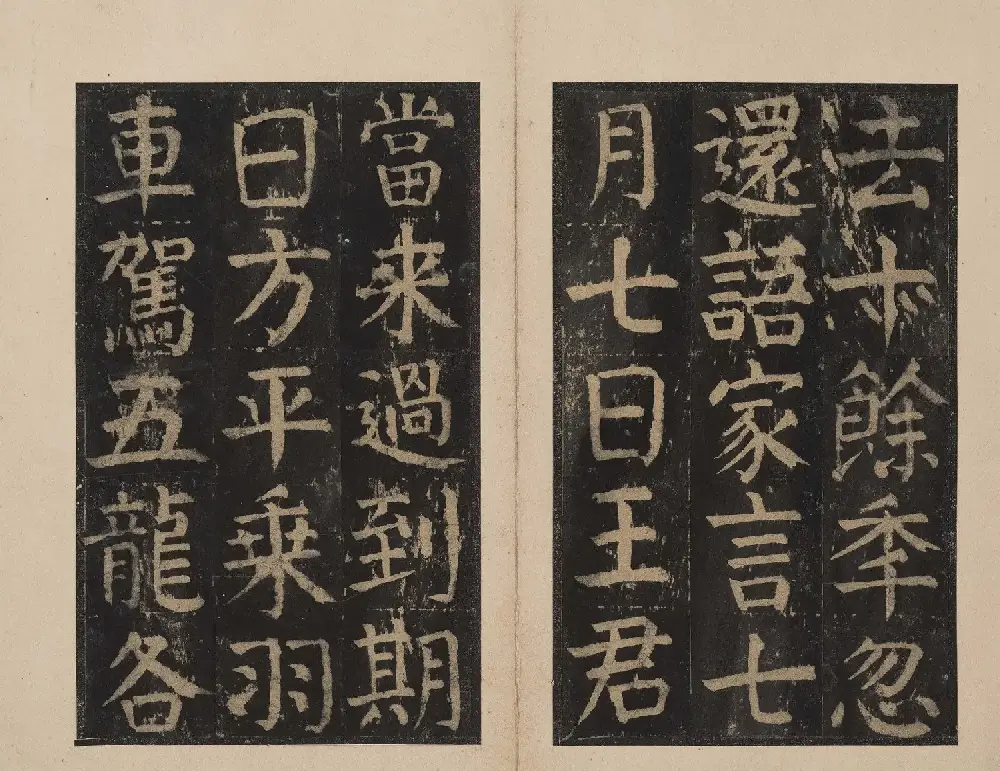 去十餘秊忽
還語家言七
月七日王君
當來過到期
日方平乗羽
車駕五龍各